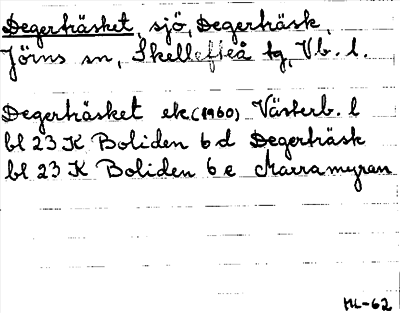 Degerträsket, sjö, Degerträsk,
Jörns sn, Skellefteå tg, Vb. l.
Degerträsket ek.(1960) Västerb. l
bl 23 K Boliden 6 d Degerträsk
bl 23 K Boliden 6 e Marramyran
HL-62